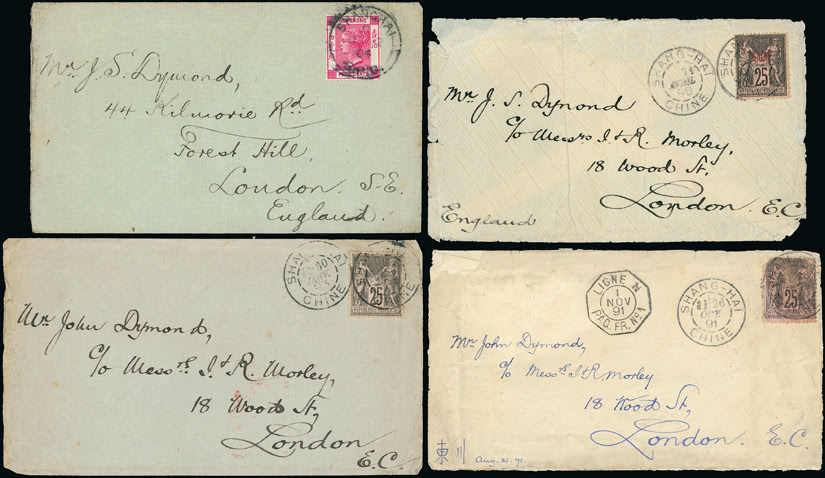 SHANGHAI
Mr. J. S. Dymond,
44 Kilmorie Rd.
Forest Hill,
London. S.E.
England.
SHANG-HAÏ
CHINE
25
Mr. J. S. Dymond
c/o Messrs I. & R. Morley,
18 Wood St,
London. E.C.
England
SHANG-HAÏ
CHINE
25
Mr. John Dymond,
c/o Messrs. I. & R. Morley,
18 Wood St,
London
E.C.
LIGNE N
1
NOV
91
PAQ. FR. No 1
SHANG-HAÏ
26
91
CHINE
25
Mr. John Dymond,
c/o Messrs. I & R. Morley
18 Wood St,
London. E.C.
東川